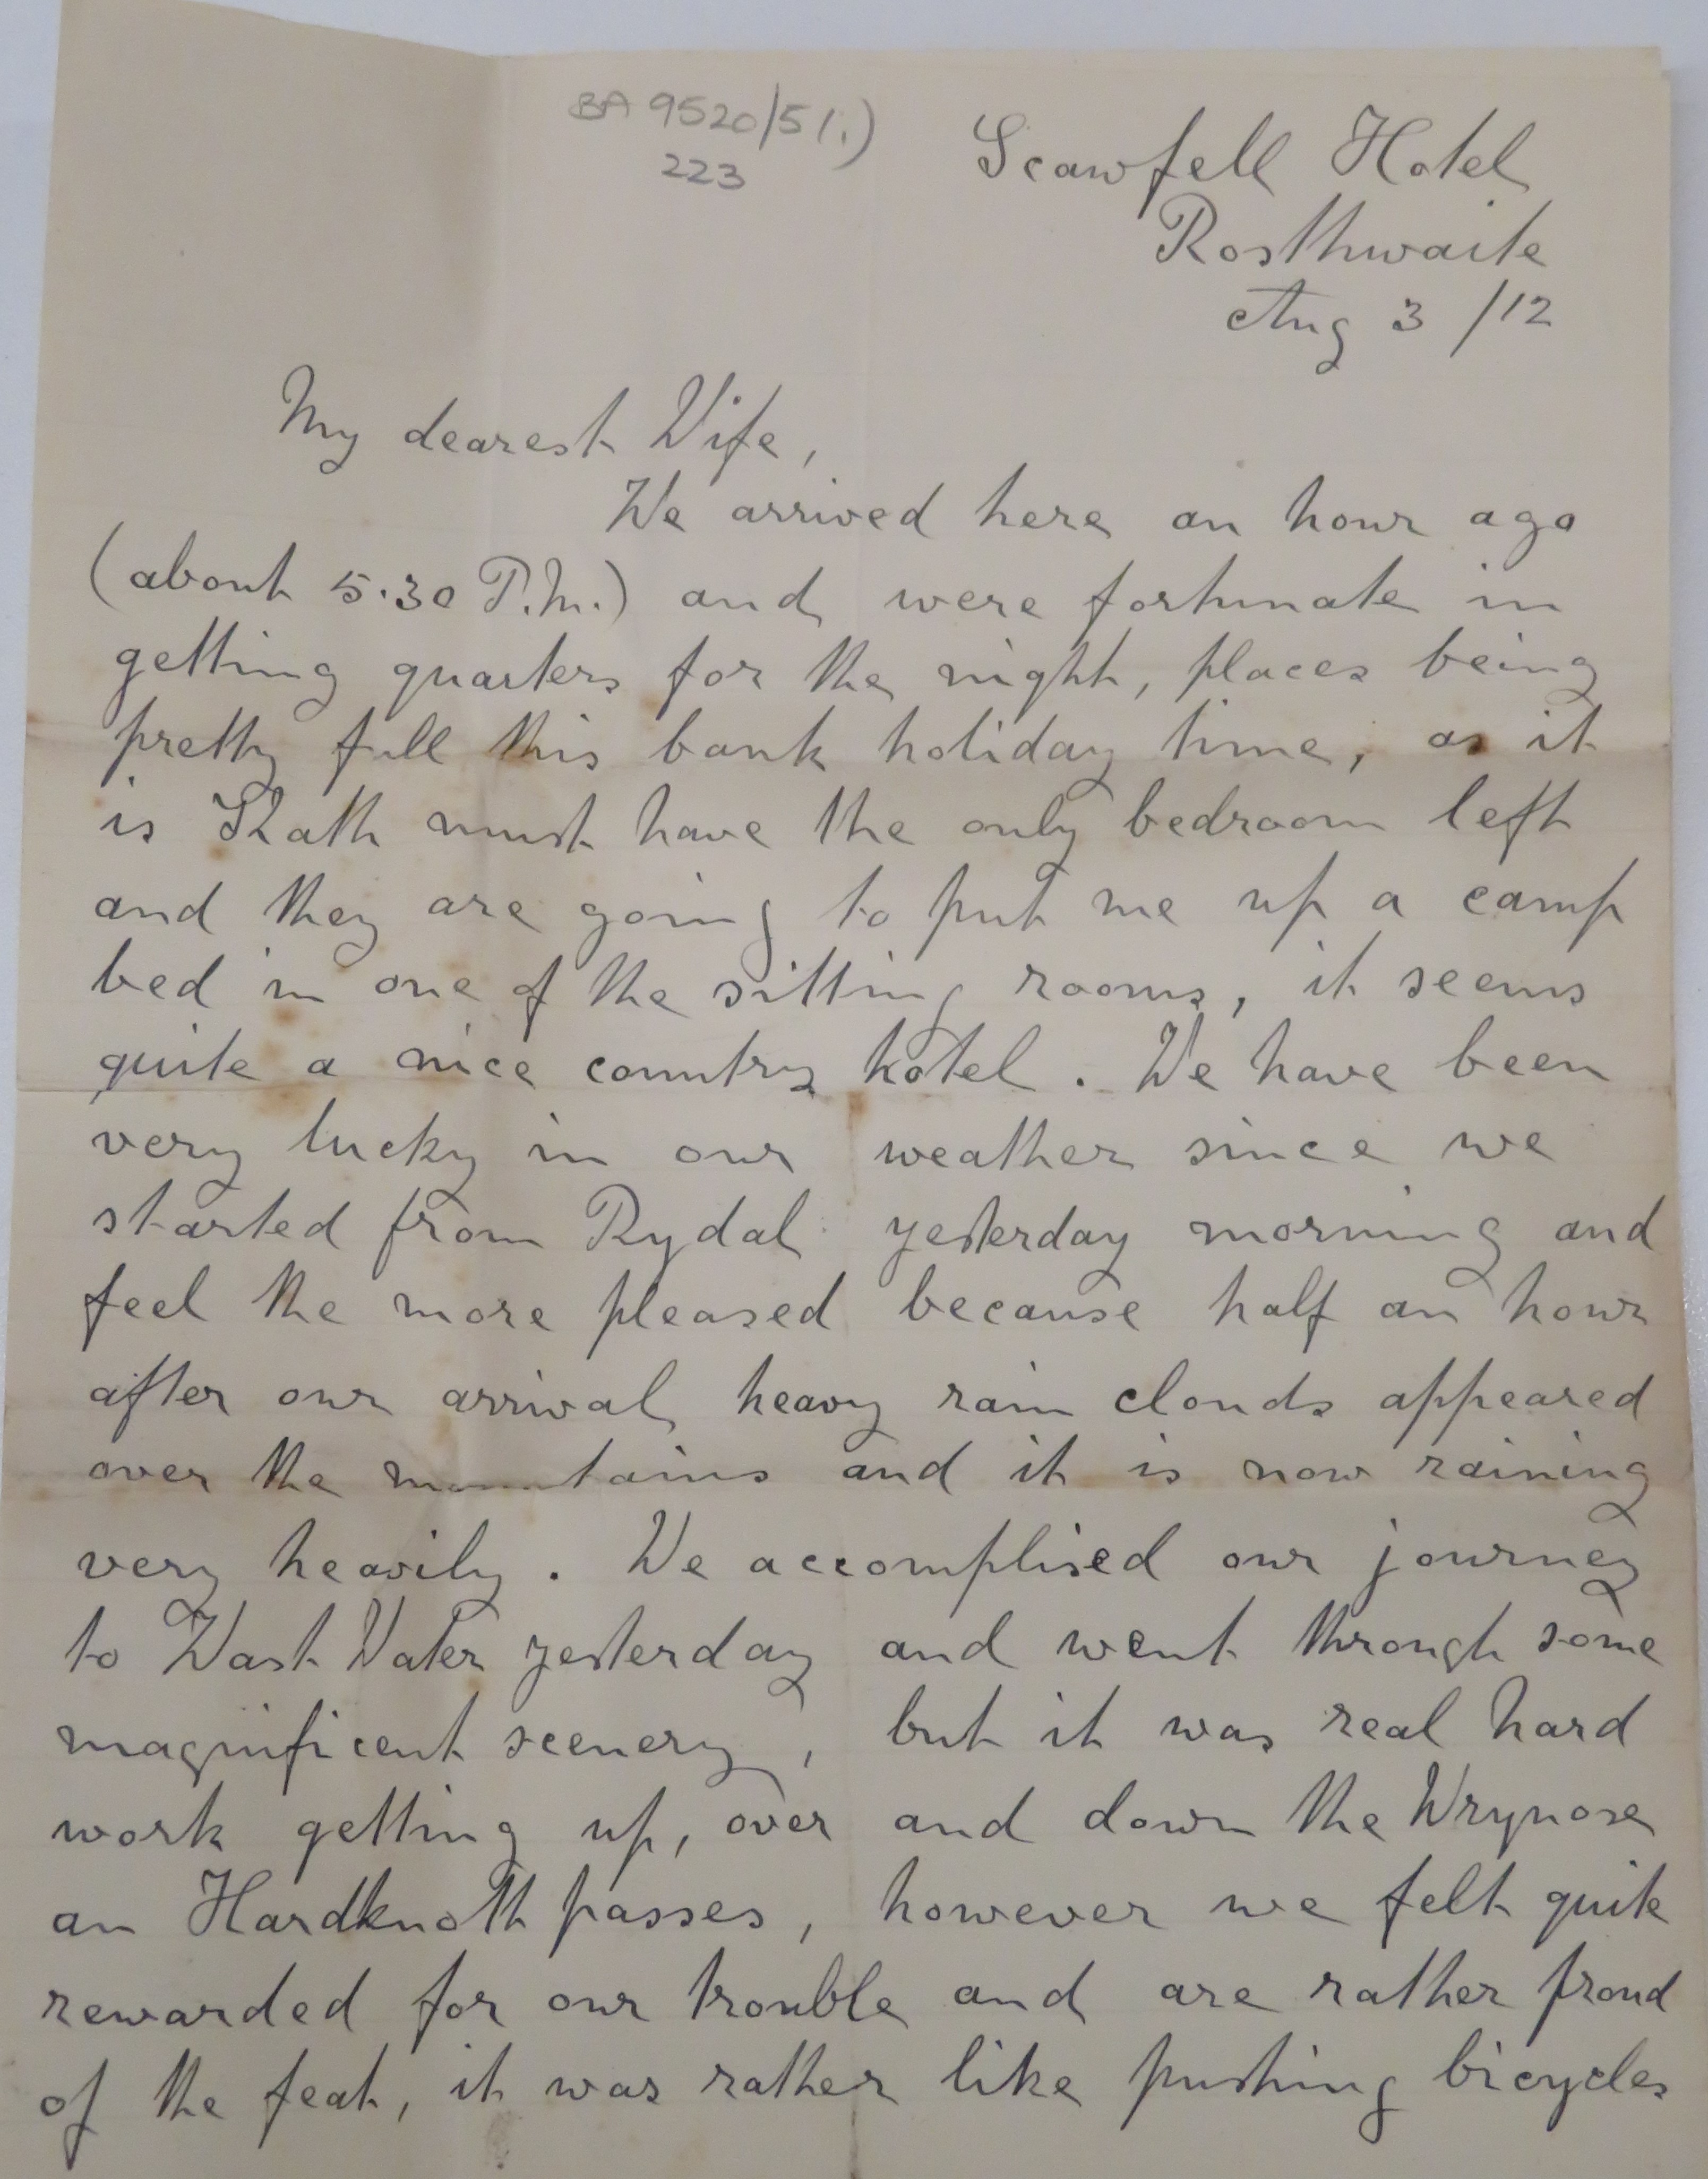 BA 9520/5(1.)
223
Scawfell Hotel
Rosthwaite
Aug 3 /12
My dearest Wife,
We arrived here an hour ago
(about 5.30 P.M.) and were fortunate in
getting quarters for the night, places being
pretty full this bank holiday time, as it
is Kath must have the only bedroom left
and they are going to put me up a camp
bed in one of the sitting rooms, it seems
quite a nice country hotel. We have been
very lucky in our weather since we
started from Rydal yesterday morning and
feel the more pleased because half an hour
after our arrival heavy rain clouds appeared
over the mountains and it is now raining
very heavily. We accomplised our journey
to Wast Water yesterday and went through some
magnificent scenery, but it was real hard
work getting up, over and down the Wrynose
an Hardknott passes, however we felt quite
rewarded for our trouble and are rather proud
of the feat, it was rather like pushing bicycles